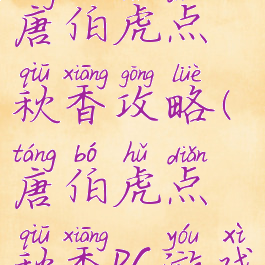 唐伯虎点
qiū xiāng gōng lüè
秋香攻略(
táng bó hǔ diǎn
唐伯虎点
qiū xiāng yóu xì
秋香PC游戏